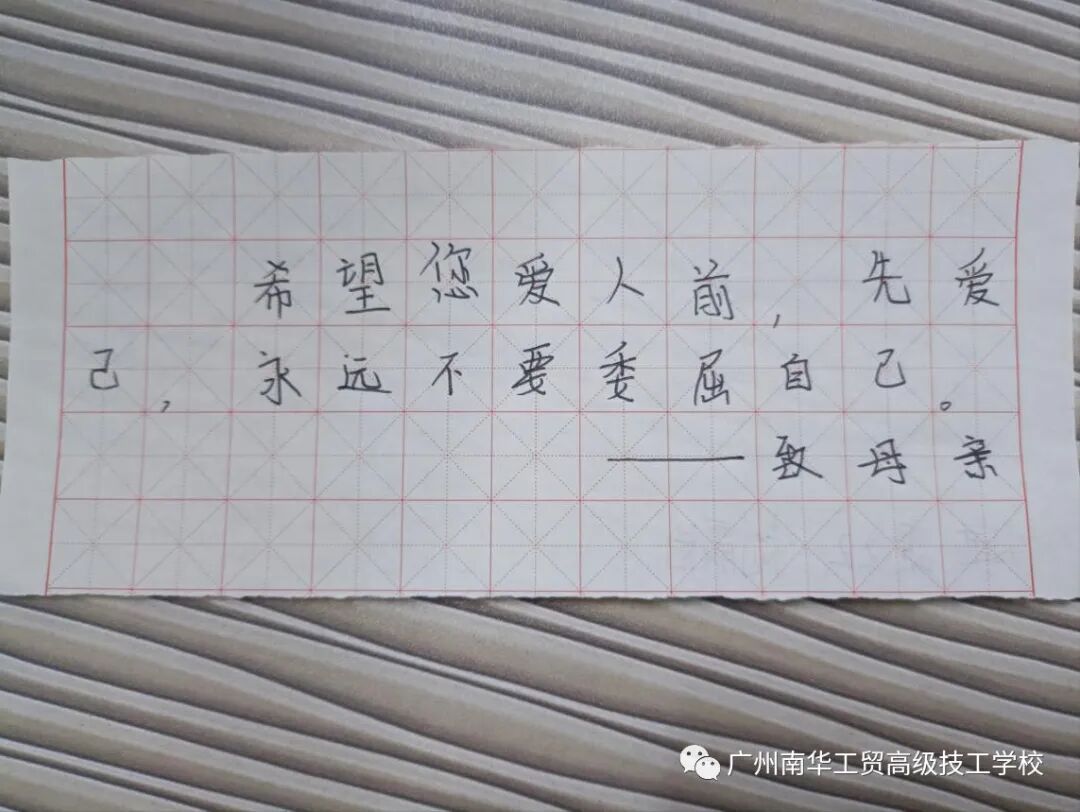 希望您爱人前，先爱
己，永远不要委屈自己。
——致母亲
广州南华工贸高级技工学校